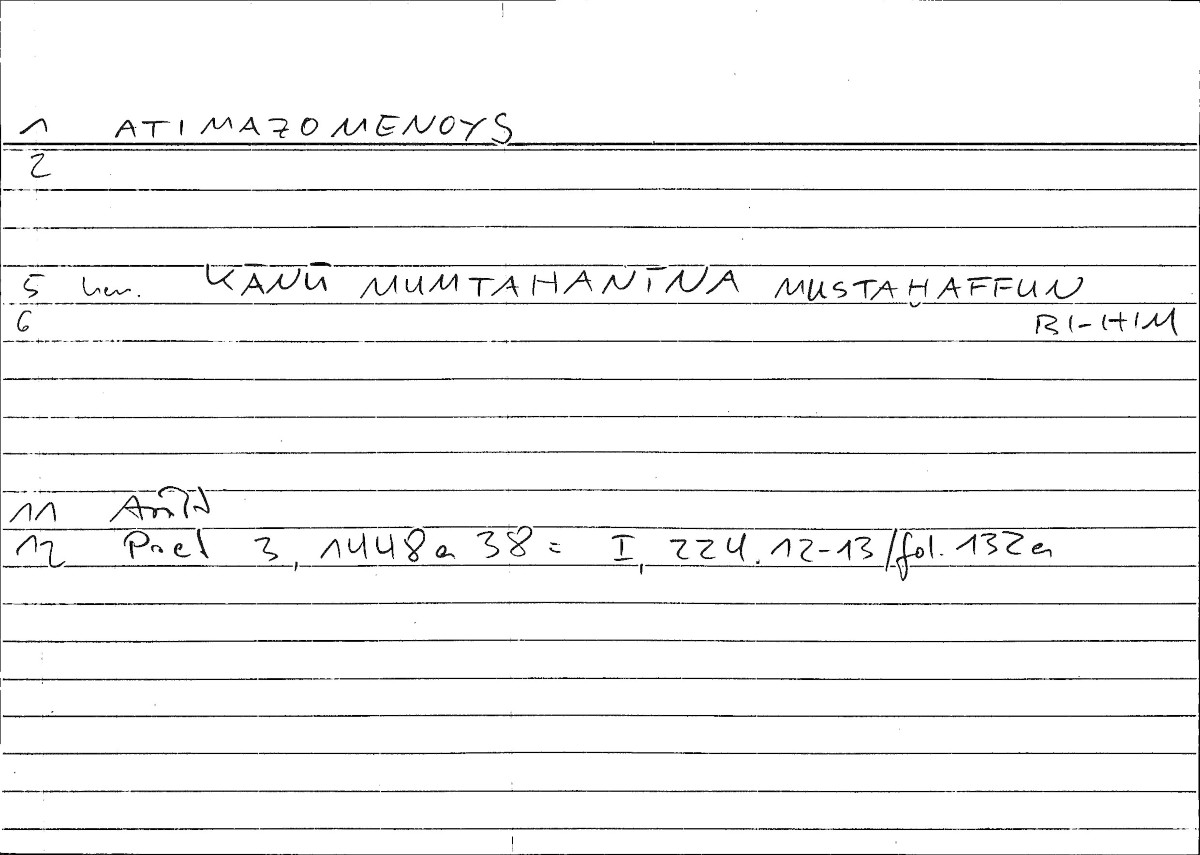 1 ATIMAZOMENOYS
2
5 hen. KĀNŪ MUMTAHANĪNA MUSTAḪAFFUN
6 BI-HIM
11
12 3, 1448a 38 = I, 224.12-13/fol. 132a